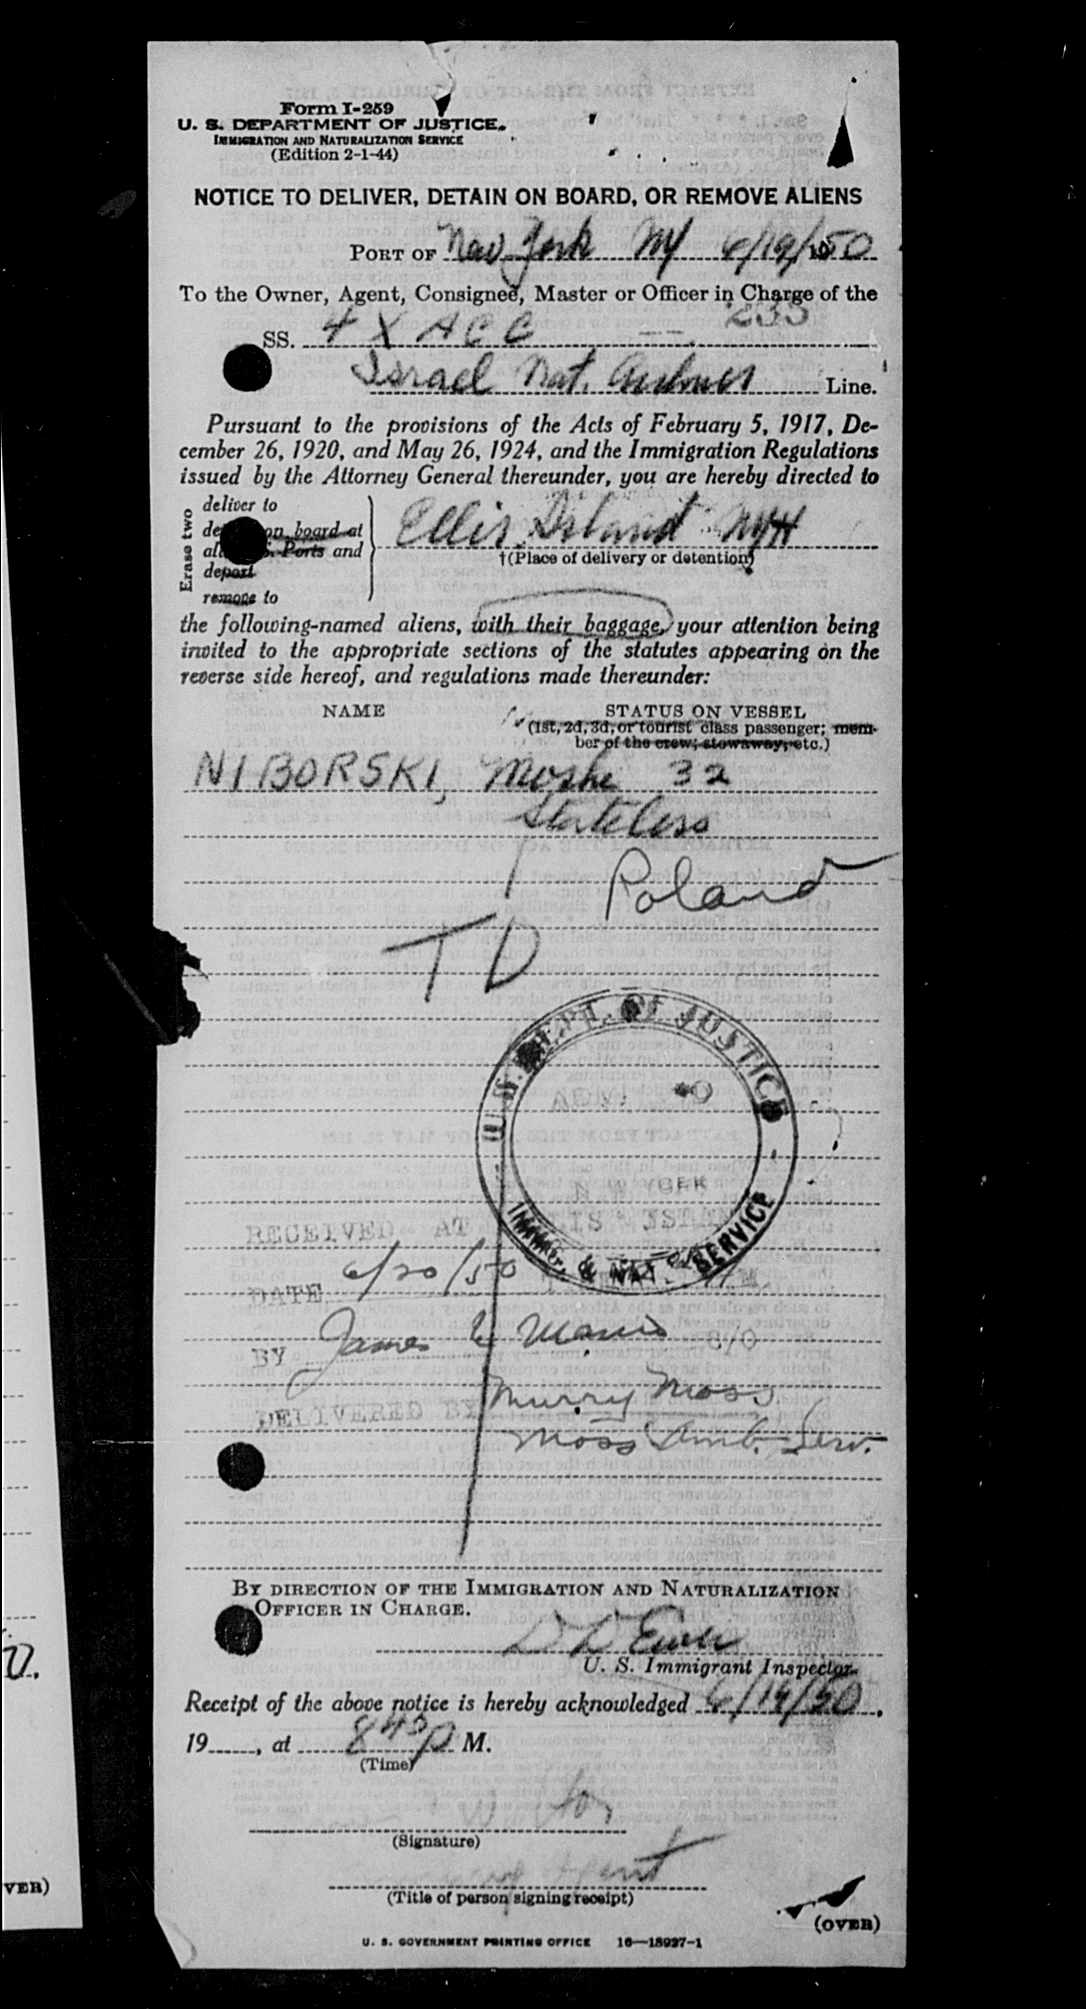 Form I-259
U. S. DEPARTMENT OF JUSTICE.
IMMIGRATION AND NATURALIZATION SERVICE
(Edition 2-1-44)
NOTICE TO DELIVER, DETAIN ON BOARD, OR REMOVE ALIENS
PORT OF New York NY 6/19/1950
To the Owner, Agent, Consignee, Master or Officer in Charge of the
235
SS. 4 X A C C
Israel Nat. Airlines Line.
Pursuant to the provisions of the Acts of February 5, 1917, De-
cember 26, 1920, and May 26, 1924, and the Immigration Regulations
issued by the Attorney General thereunder, you are hereby directed to
Erase two
deliver to
on board at
Ports and
deport
remove to
Ellis Island NYH
†(Place of delivery or detention)
the following-named aliens, with their baggage, your attention being
invited to the appropriate sections of the statutes appearing on the
reverse side hereof, and regulations made thereunder:
NAME STATUS ON VESSEL
(1st, 2d, 3d, or tourist class passenger; mem-
ber of the crew; stowaway, etc.)
NIBORSKI, Moshe 32
Stateless
Poland
T D
U.S. DEPT. OF JUSTICE
YORK
IMMIGR. & NAT. SERVICE
RECEIVED AT ELLIS ISLAND
DATE 6/20/50 M.
BY James
DELIVERED BY Murry Moss
Moss Amb. Serv.
BY DIRECTION OF THE IMMIGRATION AND NATURALIZATION
OFFICER IN CHARGE.
U. S. Immigrant Inspector.
Receipt of the above notice is hereby acknowledged 6/19/50,
19____, at 8 45 P M.
(Time)
(Signature)
Agent
(Title of person signing receipt)
(OVER)
U. S. GOVERNMENT PRINTING OFFICE 16—18927-1
VER)